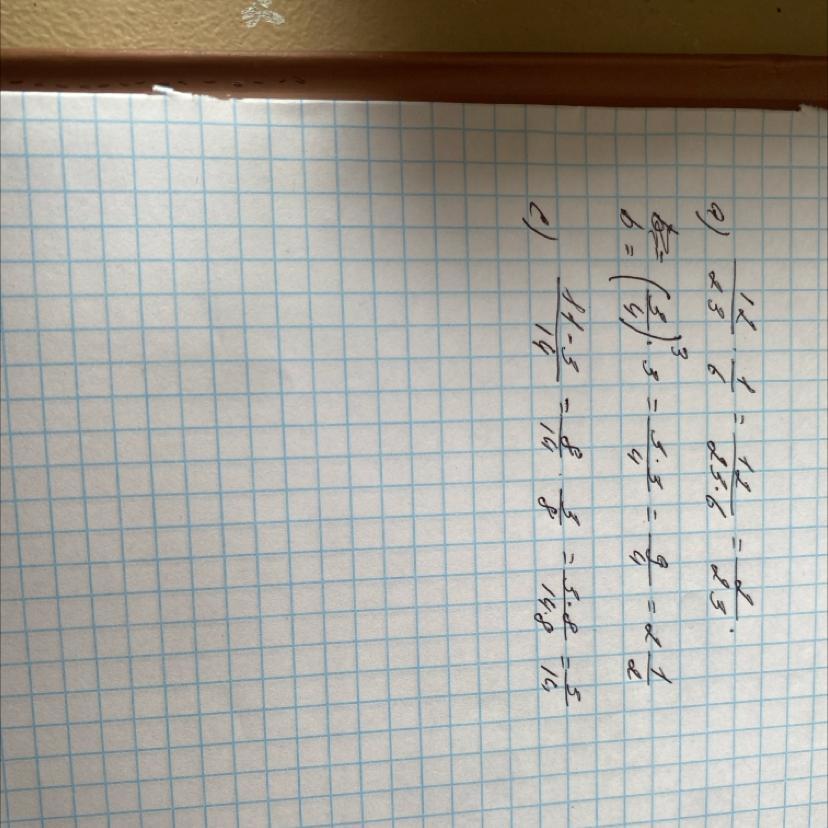 a) 12/23 · 1/6 = 12/23·6 = 2/23.
b = (3/4)³ · 3 = 3·3/4 = 9/4 = 2 1/2
c) 11-3/14 = 8/14 · 3/8 = 3·8/14·8 = 3/14